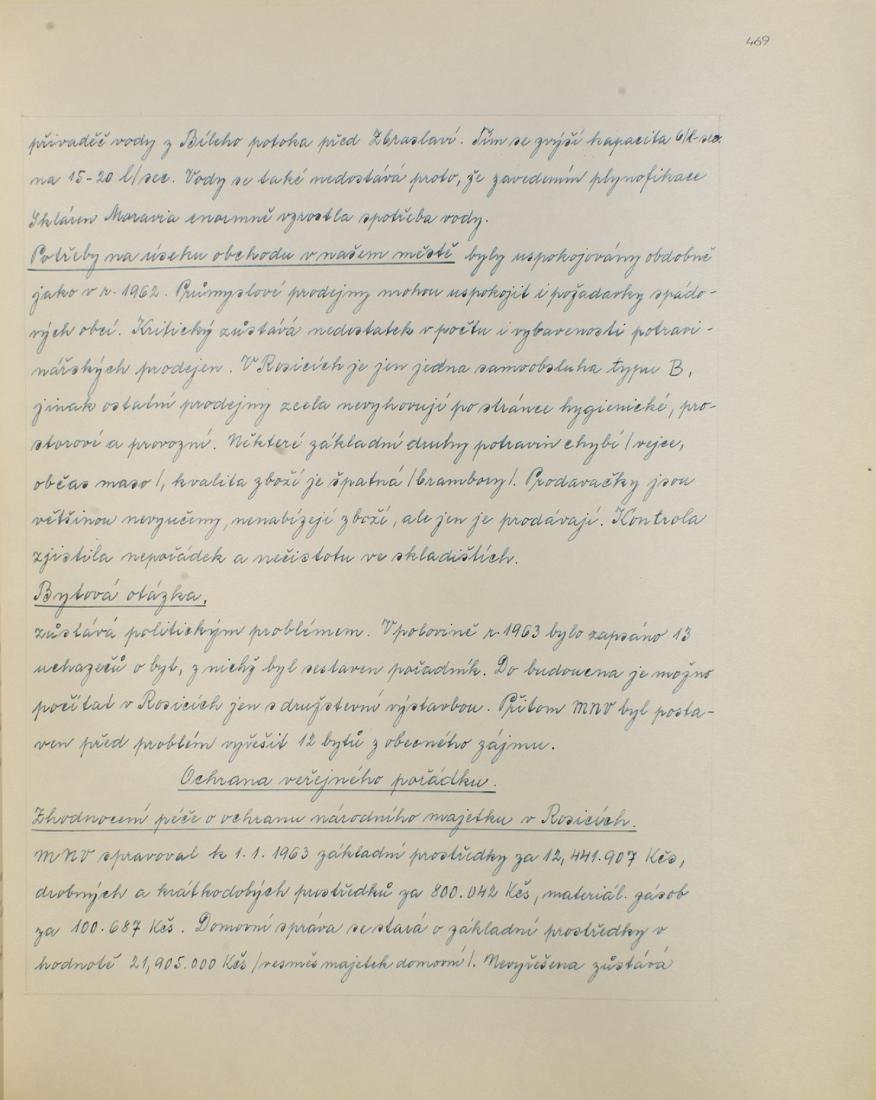 469
přivaděč vody z Bílého potoka před Zbraslaví. Tím se zvýší kapacita 6/l-sec.
na 15-20 l/sec. Vody se také nedostává proto, že zavedením plynofikace
Skláren Moravia enormně vzrostla spotřeba vody.
Potřeby na úseku obchodu v našem městě byly uspokojovány obdobně
jako v r. 1962. Průmyslové prodejny mohou uspokojit i požadavky spádo-
vých obcí. Kritický zůstává nedostatek v počtu i vybavenosti potravi-
nářských prodejen. V Rosicích je jen jedna samoobsluha typu B,
jinak ostatní prodejny zcela nevyhovují po stránce hygienické, pro-
storové a provozní. Některé základní druhy potravin chybí /vejce,
občas maso/, kvalita zboží je špatná /brambory/. Prodavačky jsou
většinou nevyučeny, nenabízejí zboží, ale jen je prodávají. Kontrola
zjistila nepořádek a nečistotu ve skladištích.
Bytová otázka,
zůstává politickým problémem. V polovině r. 1963 bylo zapsáno 13
uchazečů o byt, z nichž byl sestaven pořadník. Do budoucna je možno
počítat v Rosicích jen s družstevní výstavbou. Přitom MNV byl posta-
ven před problém vyřešit 12 bytů z obecného zájmu.
Ochrana veřejného pořádku.
Zhodnocení péče o ochranu národního majetku v Rosicích.
MNV spravoval k 1.1. 1963 základní prostředky za 12,441.907 Kčs,
drobných a krátkodobých prostředků za 800.042 Kčs, materiál. zásob
za 100.687 Kčs. Domovní správa se stará o základní prostředky v
hodnotě 21,905.000 Kčs /vesměs majetek domovní/. Nevyřešena zůstává